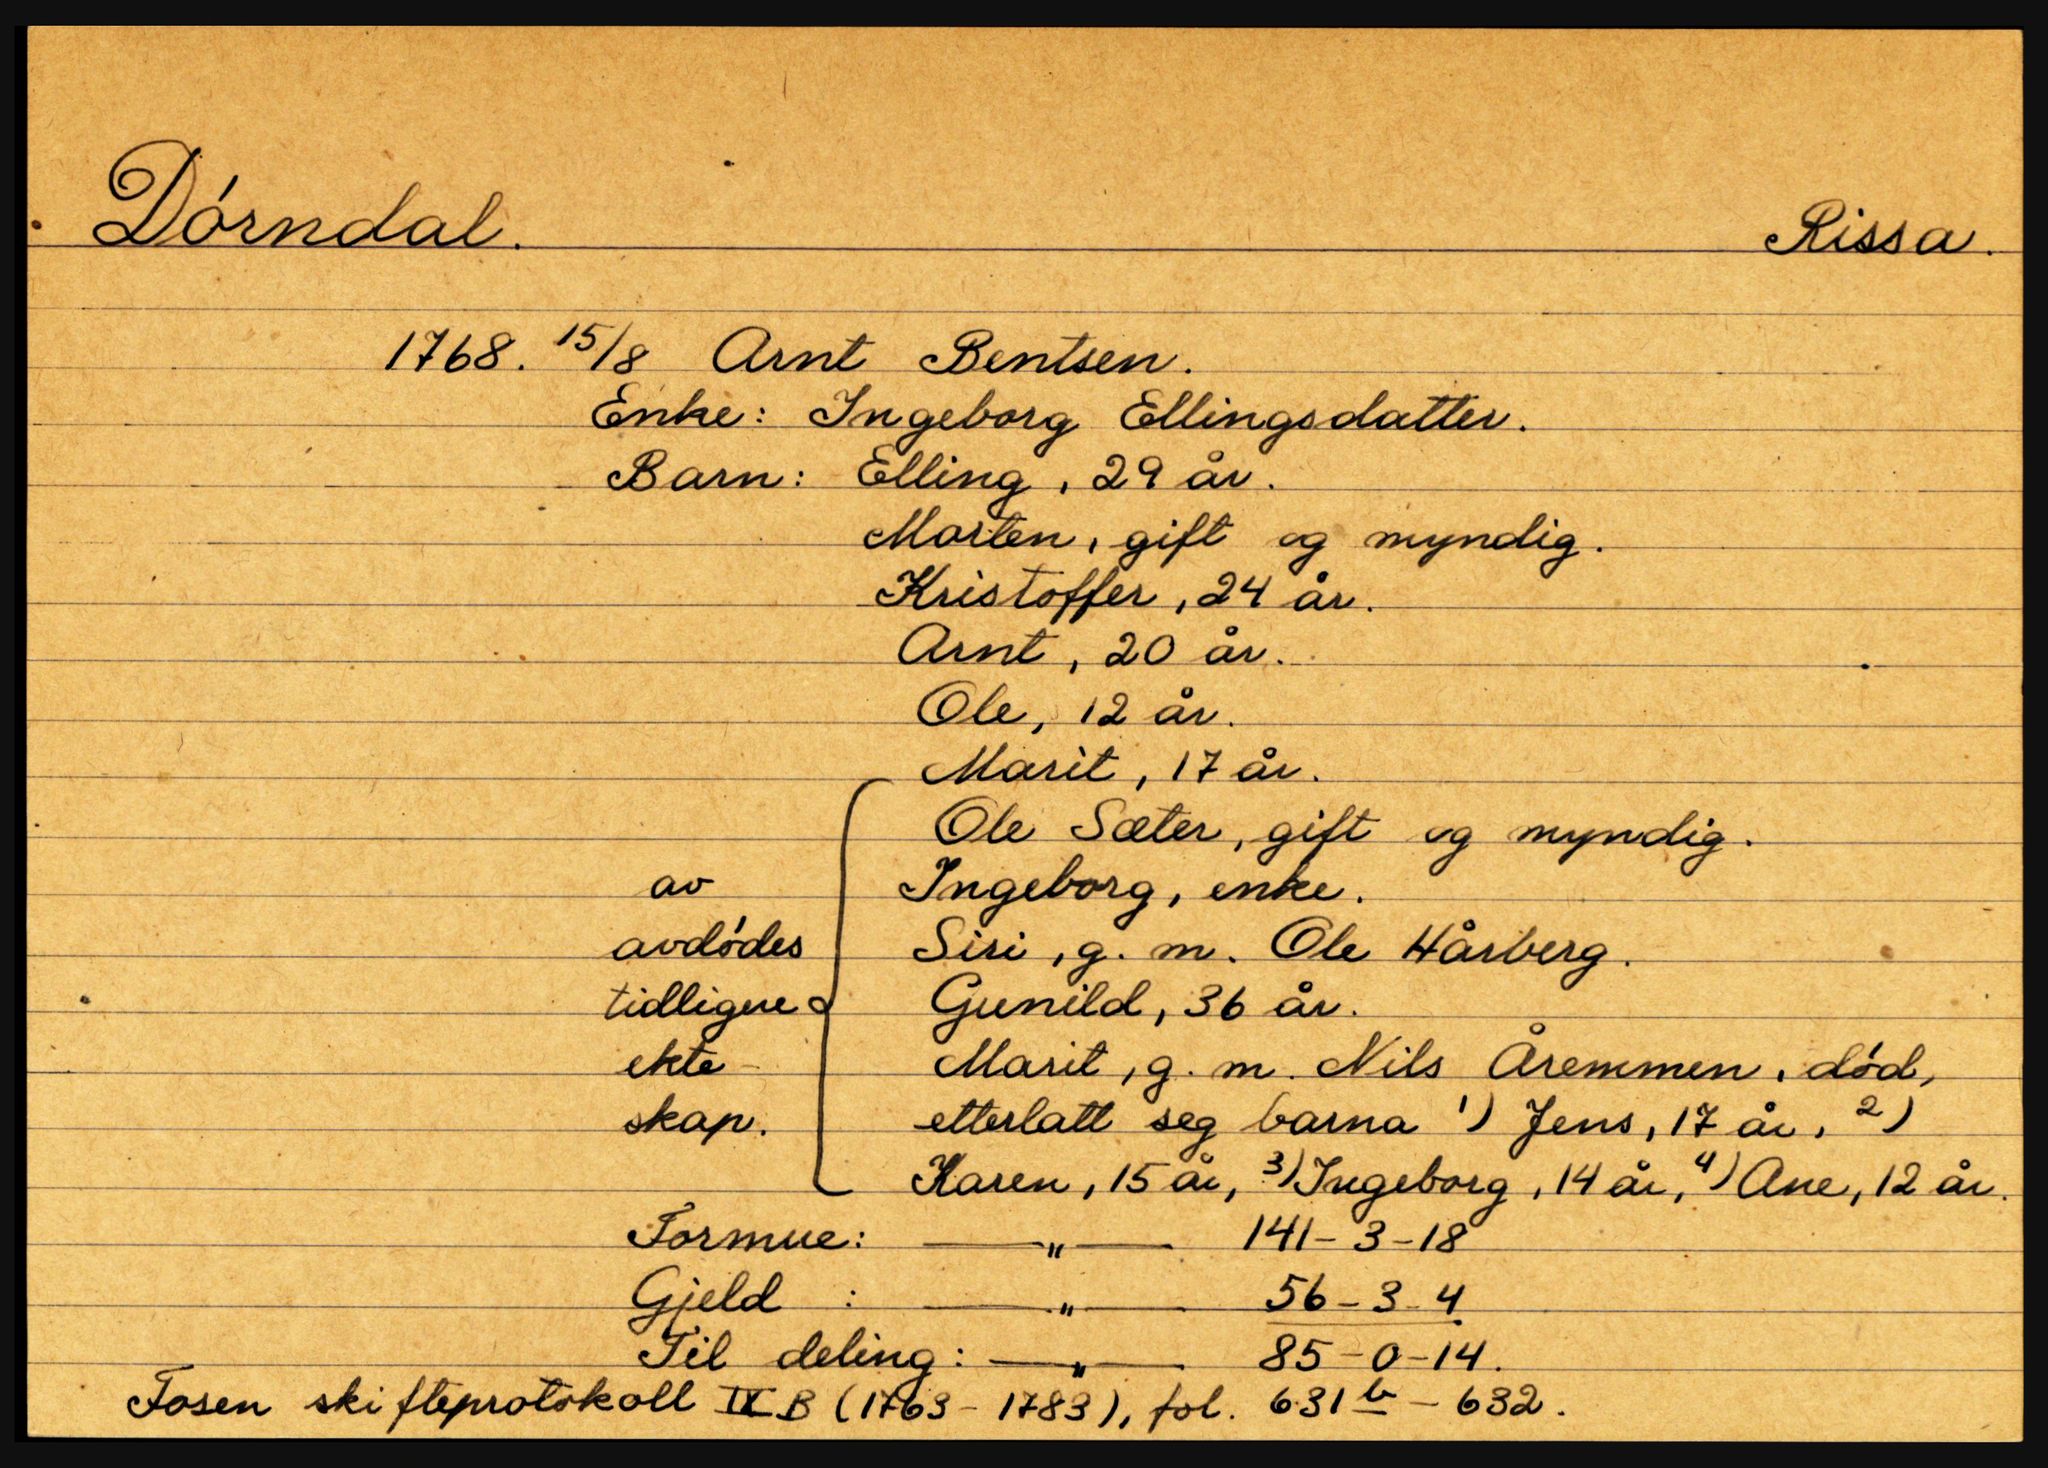 Dórndal. Rissa.
1768. 15/8 Arnt Bentsen.
Enke: Ingeborg Ellingsdatter.
Barn: Elling, 29 år.
Morten, gift og myndig.
Kristoffer, 24 år.
Arnt, 20 år.
Ole, 12 år.
Marit, 17 år.
Ole Sæter, gift og myndig.
av Ingeborg, enke.
avdódes Siri, g. m. Ole Hårberg.
tidligere Gunild, 36 år.
ekte- Marit, g. m. Nils Åremmen, dód,
skap. etterlatt seg barna 1) Jens, 17 år, 2)
Karen, 15 år, 3) Ingeborg, 14 år, 4) Ane, 12 år.
Formue: — " — 141-3-18
Gjeld : — " — 56-3-4
Til deling: — " — 85-0-14.
Fosen skifteprotokoll IX B (1763-1783), fol. 631b - 632.